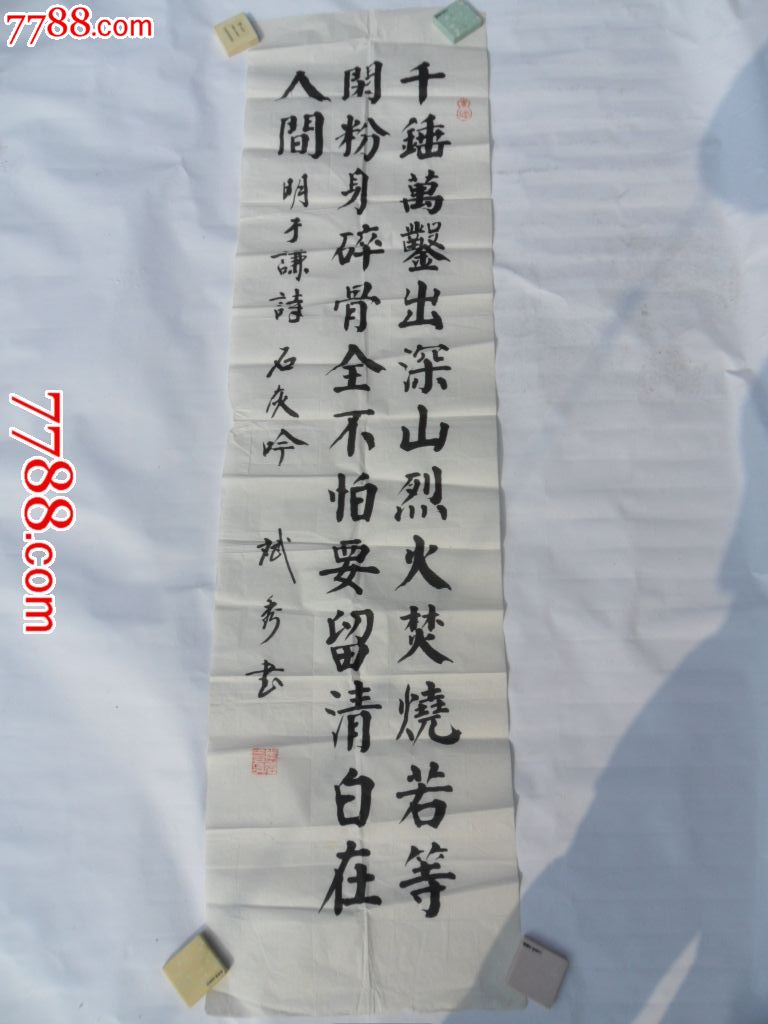 千錘萬鑿出深山烈火焚燒若等
閑粉身碎骨全不怕要留清白在
人間 明于謙詩 石灰吟 斌秀书
7788.com
7788.com